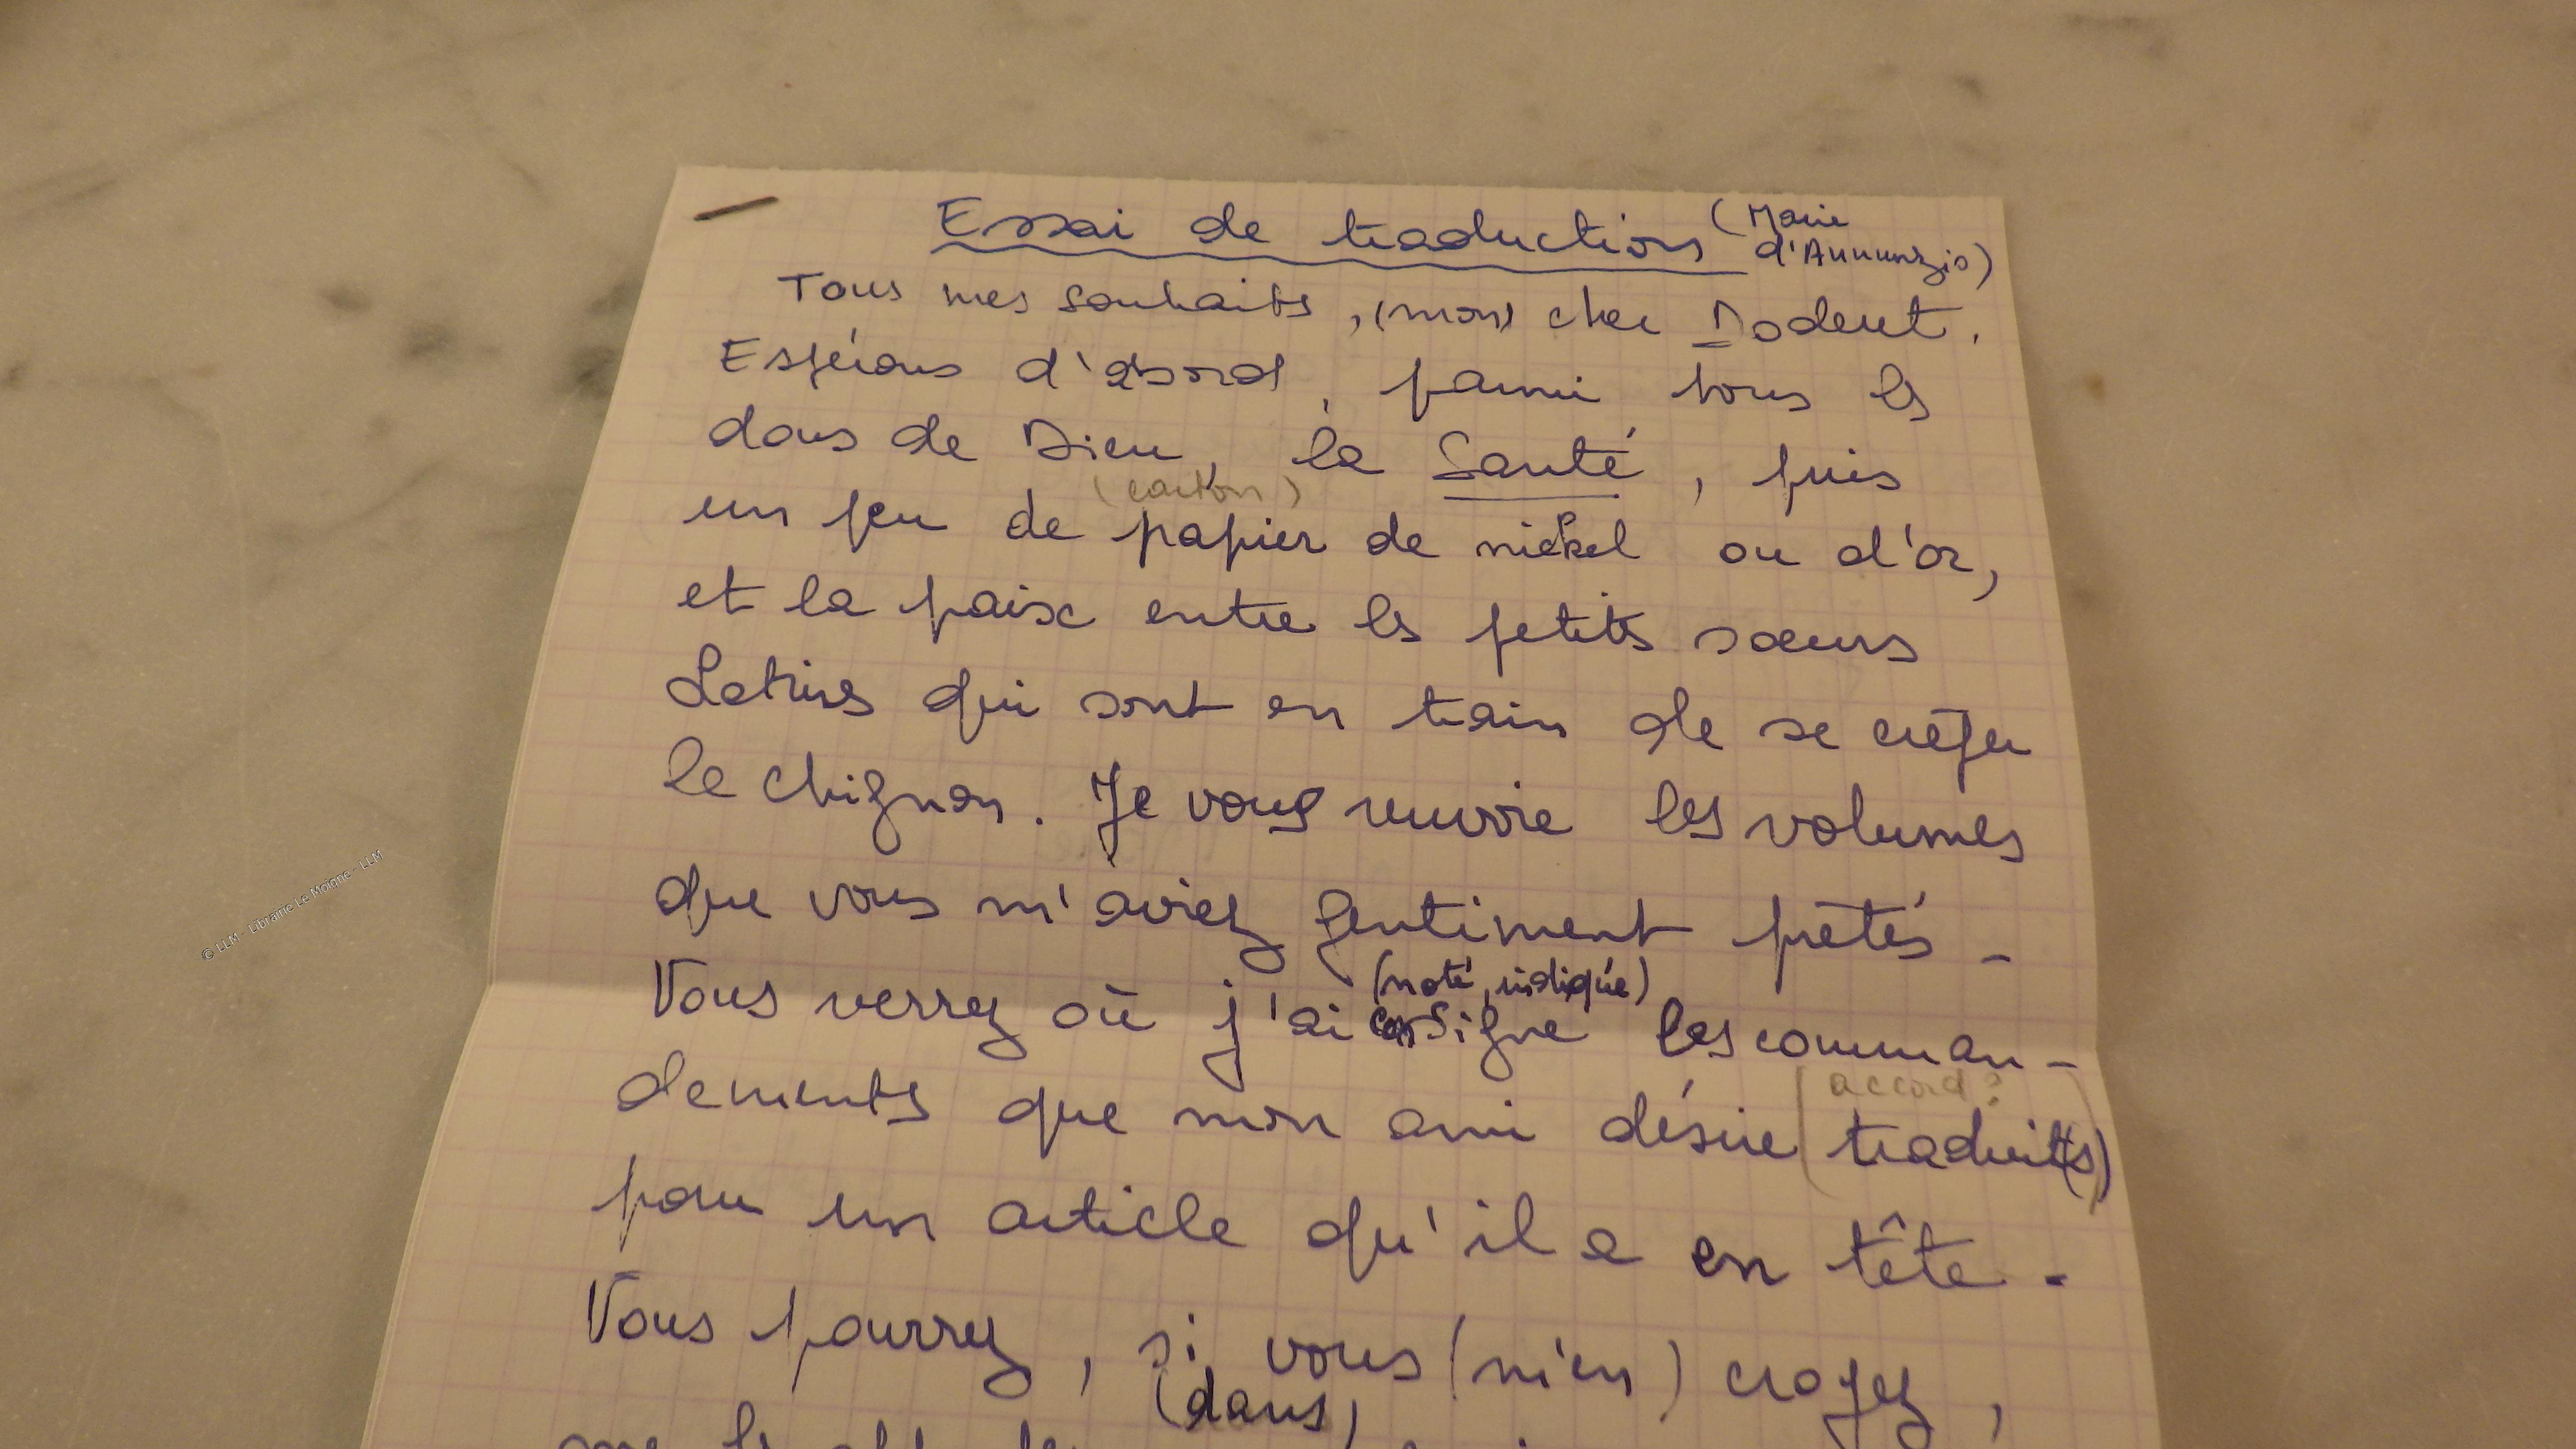 Essai de traduction (Marie
d'Annunzio)
Tous mes souhaits, (mon) cher Doderet.
Espérons d'abord, parmi tous les
dons de Dieu, la Santé, puis
(carton)
un peu de papier de nickel ou d'or,
et la paix entre les petites sœurs
Latines qui sont en train de se crêper
le chignon. Je vous renvoie les volumes
que vous m'aviez gentiment prêtés -
(noté, indiqué)
Vous verrez où j'ai consigné les comman-
accord?
dements que mon ami désire (traduit(s)
pour un article qu'il a en tête.
Vous pourrez, si vous (m'en) croyez,
(dans)
© LLM - Librairie Le Moigne - LLM